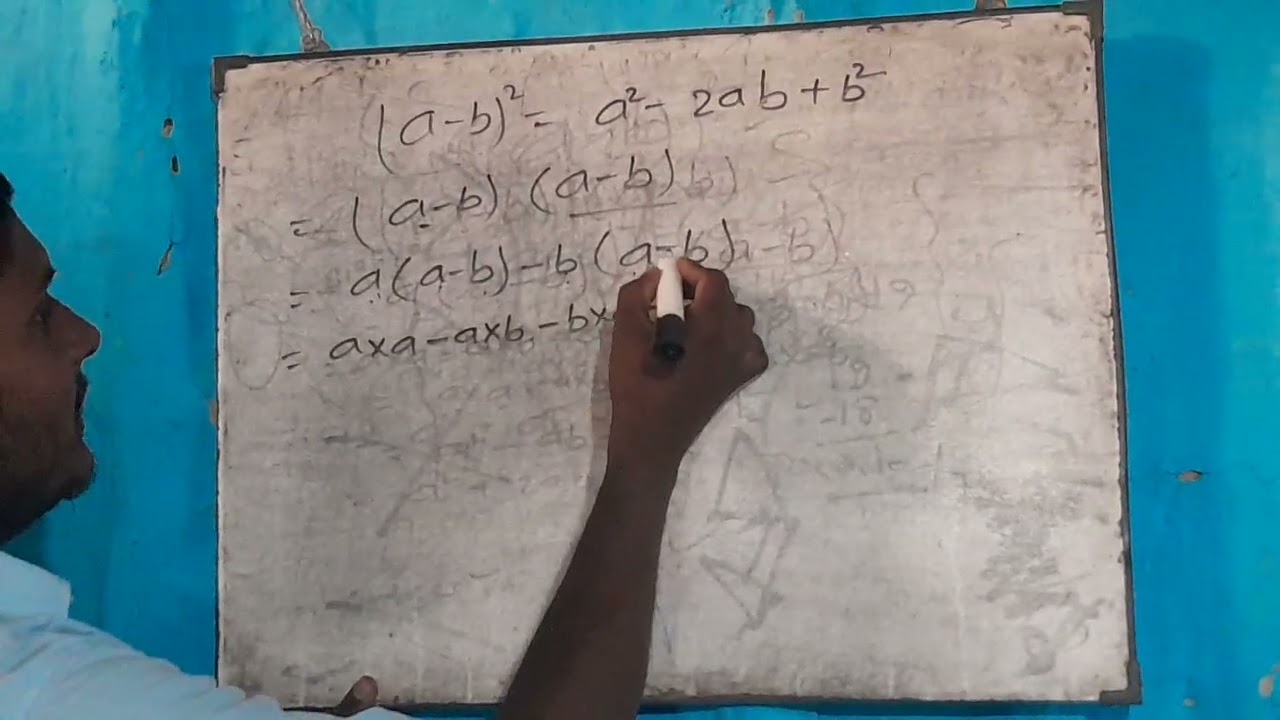 (a-b)² = a² - 2ab + b²
= (a-b) (a-b)
= a(a-b) - b (a-b)
= a×a - a×b - b×